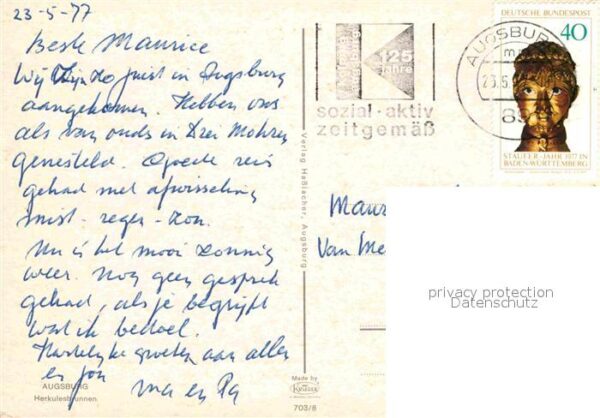 23-5-77
Beste Maurice
Wij zijn zo juist in Augsburg
aangekomen. Hebben ons
als van ouds in Drei Mohren
genesteld. Goede reis
gehad met afwisseling
mist - regen - zon.
Nu is het mooi zonnig
weer. Nog geen gesprek
gehad, als je begrijpt
wat ik bedoel.
Hartelijke groeten aan allen
en jou
ma en Pa
AUGSBURG
Herkulesbrunnen
Verlag Haßlacher, Augsburg
Made by
KRÜGER
703/8
125
Jahre
sozial · aktiv
zeitgemäß
AUGSBURG
23.5.
DEUTSCHE BUNDESPOST
40
STAUFER-JAHR 1977 IN
BADEN-WÜRTTEMBERG
Maur
Van Me
privacy protection
Datenschutz